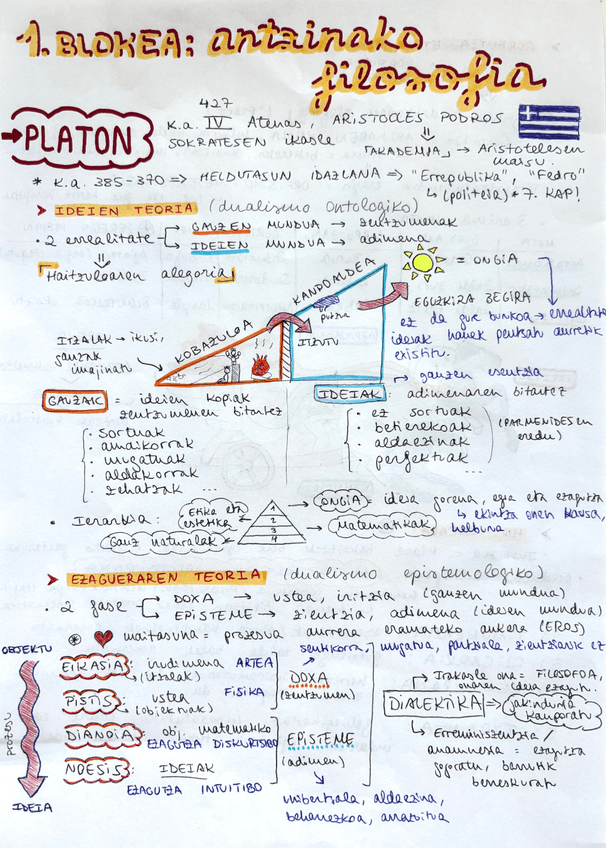 1. BLOKEA: antzinako
filosofia
PLATON
427
K.a. IV Atenas, ARISTOCLES PODROS
SOKRATESEN ikasle
"AKADEMIA" → Aristotelesen maisu.
* K.a. 385-370 ⇒ HELDUTASUN IDAZLANA ⇒ "Errepublika", "Fedro"
↳ (politeia) * 7. KAP!
➤ IDEIEN TEORIA (dualismo ontologiko)
• 2 errealitate
GAUZEN MUNDUA → zentzumenak
IDEIEN MUNDUA → adimena
⇓
Haitzuloaren alegoria
KANPOALDEA
= ONGIA
EGUZKIRA BEGIRA
KOBAZULOA
putzua
ITZALAK → ikusi,
gauzak
imajinatu
ez da gure burukoa → errealitate
ideiak hauek pentsatu aurretik
existitu.
↱ gauzen esentzia
GAUZAK = ideien kopiak
zentzumenen bitartez
• sortuak
• amaikorrak
• mugatuak
• aldakorrak
• zehatzak ...
IDEIAK: adimenaren bitartez
• ez sortuak
• betierekoak
• aldaezinak
• perfektiak
...
(PARMENIDESEN
eredu)
• Ierarkia:
Etika eta
estetika
Gauz naturalek
1
2
3
4
ONGIA = ideia gorena, egia eta ezagutza
↳ ekintza onen kausa,
helburua
Matematikak
➤ EZAGUERAREN TEORIA (dualismo epistemologiko)
• 2 fase
DOXA → ustea, iritzia (gauzen mundua)
EPISTEME → zientzia, adimena (ideien mundua)
* ♥ maitasuna = prozesua aurrera eramateko ankera (EROS)
sentikorra, mugatua, partziala, zientziarik ez
OBJEKTU
prozesu
IDEIA
EIKASIA: irudimena ARTEA
(itzalak)
PISTIS: ustea FISIKA
(objektuak)
DOXA
(zentzumen)
DIANOIA: obj. matematiko
EZAGUTZA DISKURTSIBO
NOESIS: IDEIAK
EZAGUTZA INTUITIBO
EPISTEME
(adimen)
unibertsala, aldaezina,
beharrezkoa,
Irakasle ona = FILOSOFOA,
onaren ideia ezagutu.
DIALEKTIKA ⇒ jakinduria
kanporatu
↳ Erreminiszentzia/
anamnesia = ezagutza
gogoratu, barrutik
berreskuratu